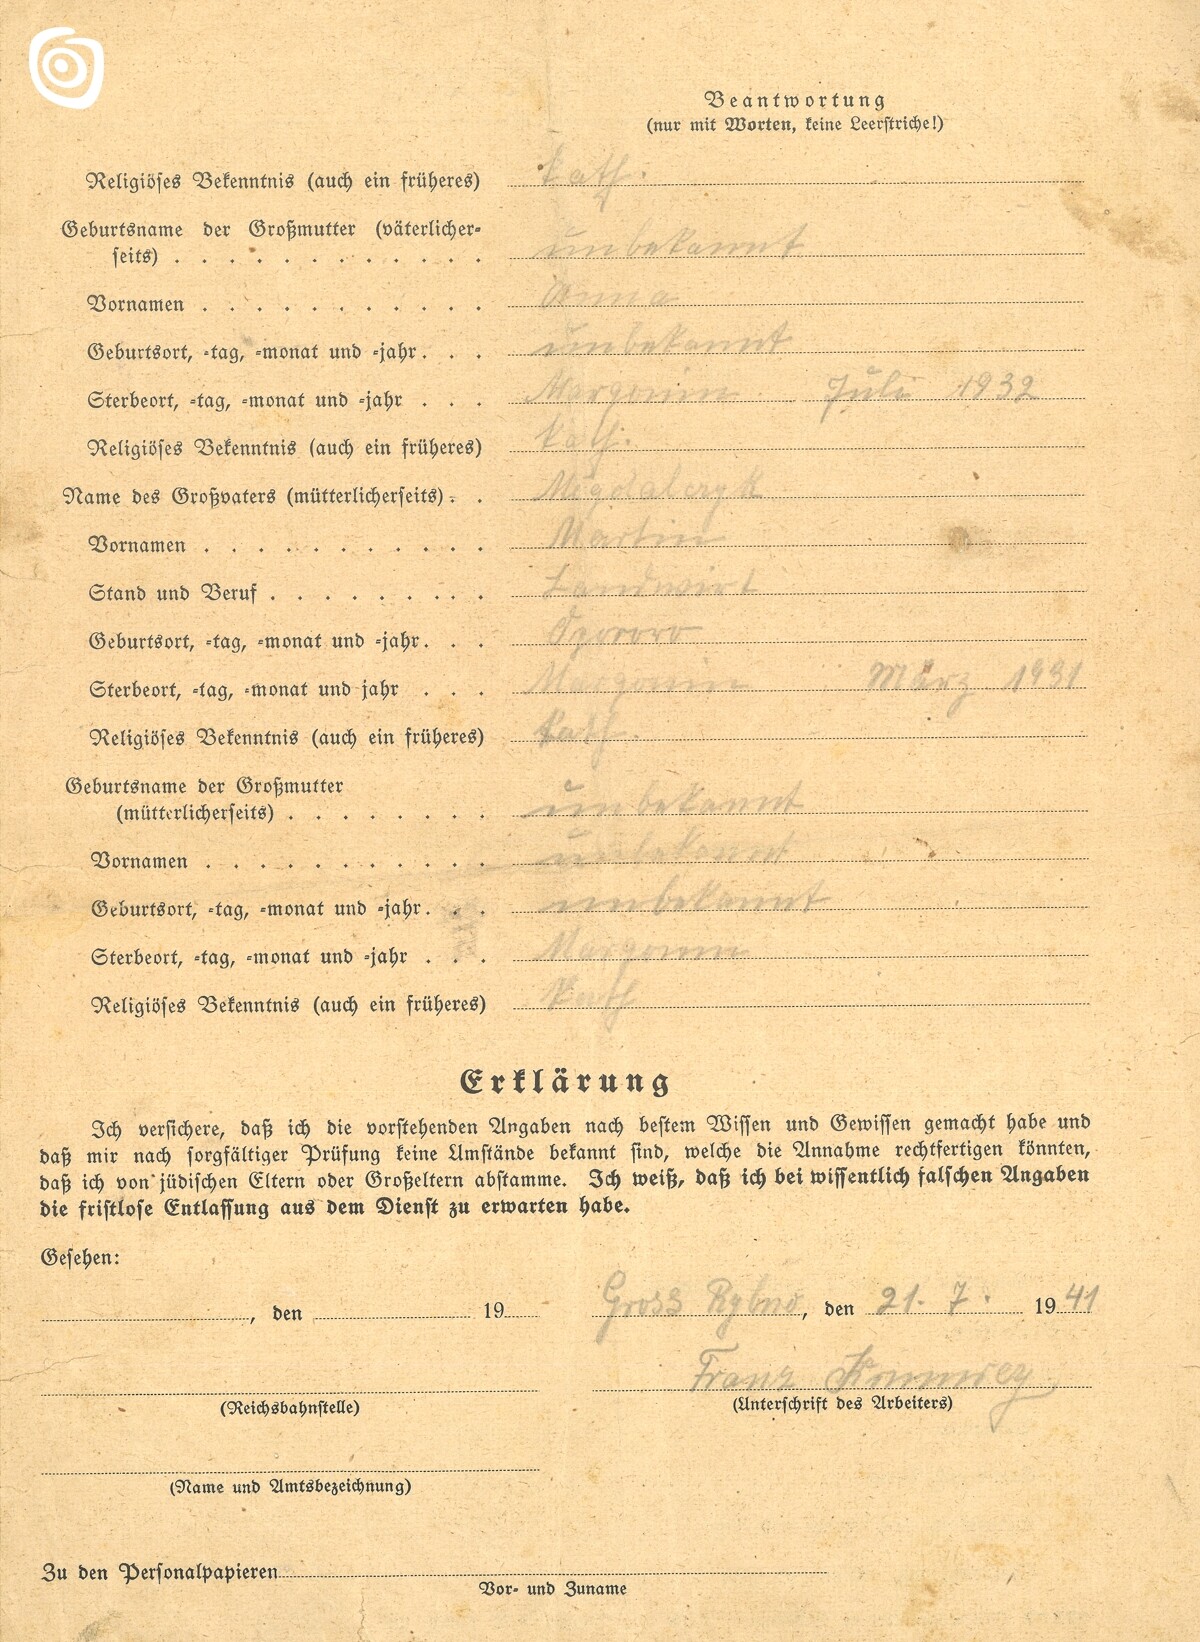 Beantwortung
(nur mit Worten, keine Leerstriche!)
Religiöses Bekenntnis (auch ein früheres) kath.
Geburtsname der Großmutter (väterlicher-
seits) . . . . . . . . . . . . unbekannt
Vornamen . . . . . . . . . . . Anna
Geburtsort, -tag, -monat und -jahr . . . unbekannt
Sterbeort, -tag, -monat und -jahr . . . Margonin Juli 1932
Religiöses Bekenntnis (auch ein früheres) kath.
Name des Großvaters (mütterlicherseits) . .
Vornamen . . . . . . . . . . . Martin
Stand und Beruf . . . . . . . . . Landwirt
Geburtsort, -tag, -monat und -jahr . . .
Sterbeort, -tag, -monat und jahr . . . Margonin März 1931
Religiöses Bekenntnis (auch ein früheres) kath.
Geburtsname der Großmutter
(mütterlicherseits) . . . . . . . . unbekannt
Vornamen . . . . . . . . . . . unbekannt
Geburtsort, -tag, -monat und -jahr . . . unbekannt
Sterbeort, -tag, -monat und -jahr . . . Margonin
Religiöses Bekenntnis (auch ein früheres) kath
Erklärung
Ich versichere, daß ich die vorstehenden Angaben nach bestem Wissen und Gewissen gemacht habe und
daß mir nach sorgfältiger Prüfung keine Umstände bekannt sind, welche die Annahme rechtfertigen könnten,
daß ich von jüdischen Eltern oder Großeltern abstamme. Ich weiß, daß ich bei wissentlich falschen Angaben
die fristlose Entlassung aus dem Dienst zu erwarten habe.
Gesehen:
, den 19 Gross Rybno, den 21. 7. 1941
Franz
(Reichsbahnstelle) (Unterschrift des Arbeiters)
(Name und Amtsbezeichnung)
Zu den Personalpapieren
Vor- und Zuname